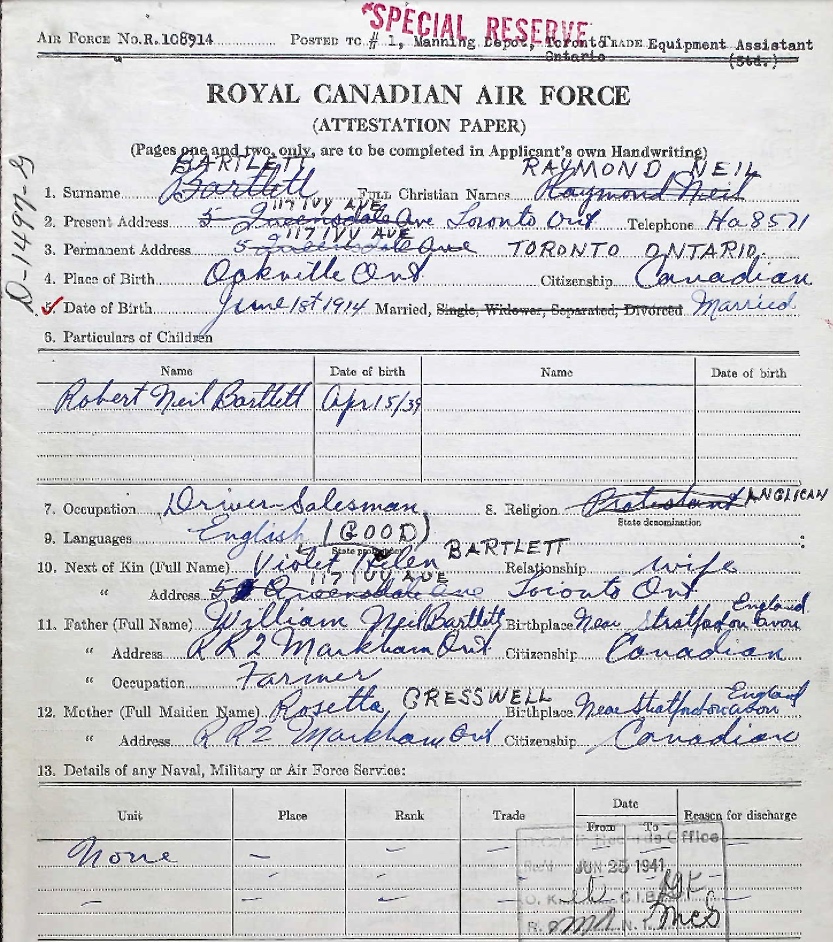 SPECIAL RESERVE
AIR FORCE No. R.108914 POSTED TO # 1, Manning Depot, Toronto Ontario TRADE Equipment Assistant (Std.)
ROYAL CANADIAN AIR FORCE
(ATTESTATION PAPER)
(Pages one and two, only, are to be completed in Applicant's own Handwriting)
D-1497-G
BARTLETT RAYMOND NEIL
1. Surname Bartlett Full Christian Names Raymond Neil
117 IVY AVE
2. Present Address 5 Queensdale Ave Toronto Ont Telephone Ha 8571
117 IVY AVE
3. Permanent Address 5 Queensdale Ave TORONTO ONTARIO
4. Place of Birth Oakville Ont Citizenship Canadian
5. Date of Birth June 1st 1914 Married, Single, Widower, Separated, Divorced Married
6. Particulars of Children
Name Date of birth Name Date of birth
Robert Neil Bartlett Apr 15/39
7. Occupation Driver-Salesman 8. Religion Protestant ANGLICAN
State denomination
9. Languages English (GOOD)
State
10. Next of Kin (Full Name) Violet Helen BARTLETT Relationship wife
117 IVY AVE
" Address Queensdale Ave Toronto Ont
11. Father (Full Name) William Neil Bartlett Birthplace Near Stratford on Avon England
" Address R R 2 Markham Ont Citizenship Canadian
" Occupation Farmer
12. Mother (Full Maiden Name) Rosetta CRESSWELL Birthplace Near Stratford on avon England
" Address R R 2 Markham Ont Citizenship Canadian
13. Details of any Naval, Military or Air Force Service:
Unit Place Rank Trade Date From To Reason for discharge
None – – – –
Records Office
JUN 25 1941